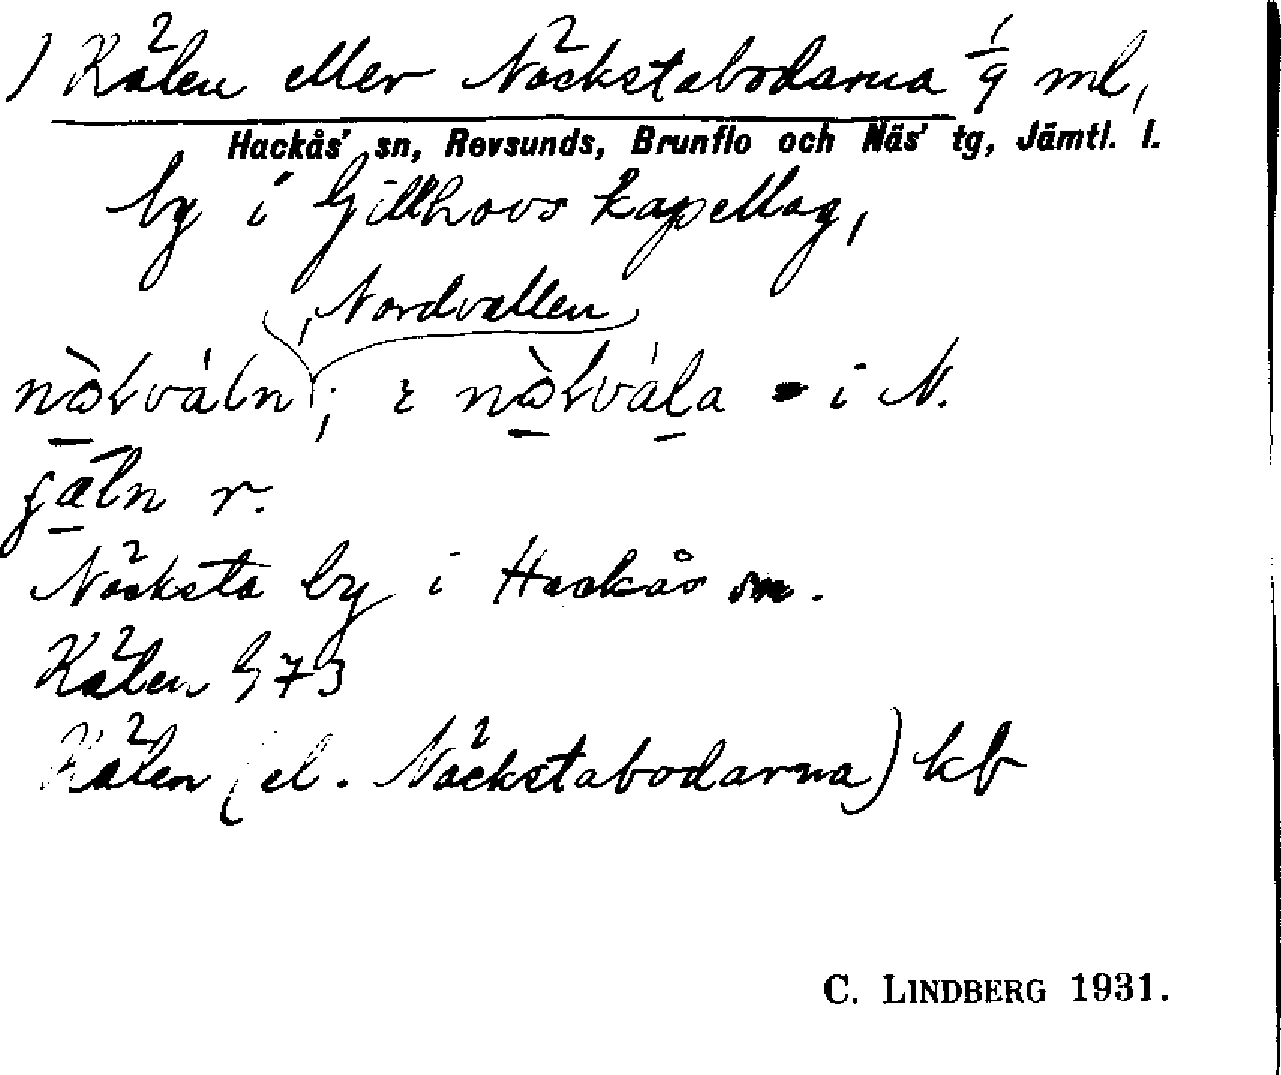 ) Kälen eller Näckstabodarna 1/9 ml,
Hackås' sn, Revsunds, Brunflo och Näs' tg, Jämtl. l.
by i Gillhovs kapellag,
Nordvallen
i N.
r.
Näcksta by i Hackås sn.
Kälen G 73
Kälen (el. Näckstabodarna) kb
C. LINDBERG 1931.